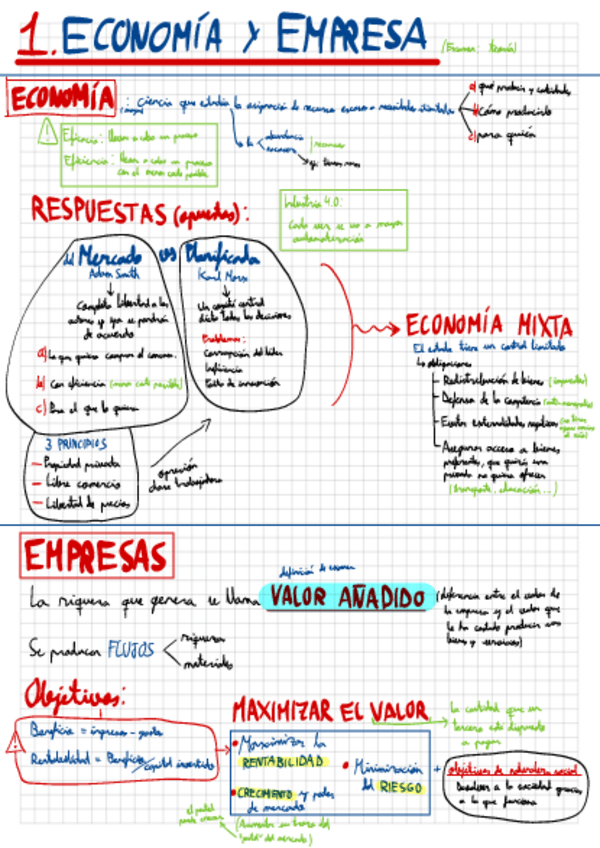 1. ECONOMÍA Y EMPRESA (Examen: teoría)
ECONOMÍA: Ciencia que estudia la asignación de recursos escasos a necesidades ilimitadas
a) qué producir y cantidades
b) Cómo producirlo
c) para quién
Eficacia: llevar a cabo un proceso
Eficiencia: llevar a cabo un proceso
con el menor coste posible
abundancia
escasos
recursos
RESPUESTAS (opuestas):
Industria 4.0:
Cada vez se va a mayor
automatización
del Mercado vs Planificada
Adam Smith
Karl Marx
Completa libertad a los
actores y que se pondrán
de acuerdo
a) Lo que quiera comprar el consumo.
b) Con eficiencia (menor coste posible)
c) Para el que lo quiera
Un comité central
dicta todas las decisiones
Problemas:
Corrupción del líder
Ineficiencia
Falta de innovación
ECONOMÍA MIXTA
El estado tiene un control limitado
Redistribución de bienes (impuestos)
Defensa de la competencia (anti-monopolios)
Evitar externalidades negativas
Asegurar acceso a bienes
preferentes, que quizás una
privada no quiera ofrecer
(transporte, educación...)
3 PRINCIPIOS
- Propiedad privada
- Libre comercio
- Libertad de precios
opresión
clase trabajadora
EMPRESAS
definición de examen
La riqueza que genera se llama VALOR AÑADIDO (diferencia entre el valor de
la empresa y el valor que
le ha costado producir sus
bienes y servicios)
Se producen FLUJOS
riquezas
materiales
Objetivos:
Beneficio = ingresos - gastos
Rentabilidad = Beneficio/capital invertido
MAXIMIZAR EL VALOR
La cantidad que un
tercero está dispuesto
a pagar
Maximizar la
RENTABILIDAD
CRECIMIENTO y poder
de mercado
Minimización
del RIESGO
+
objetivos de naturaleza social
Devolver a la sociedad gracias
a la que funciona
(Aumentar su trozo del
"pastel" del mercado)
el pastel
puede crecer